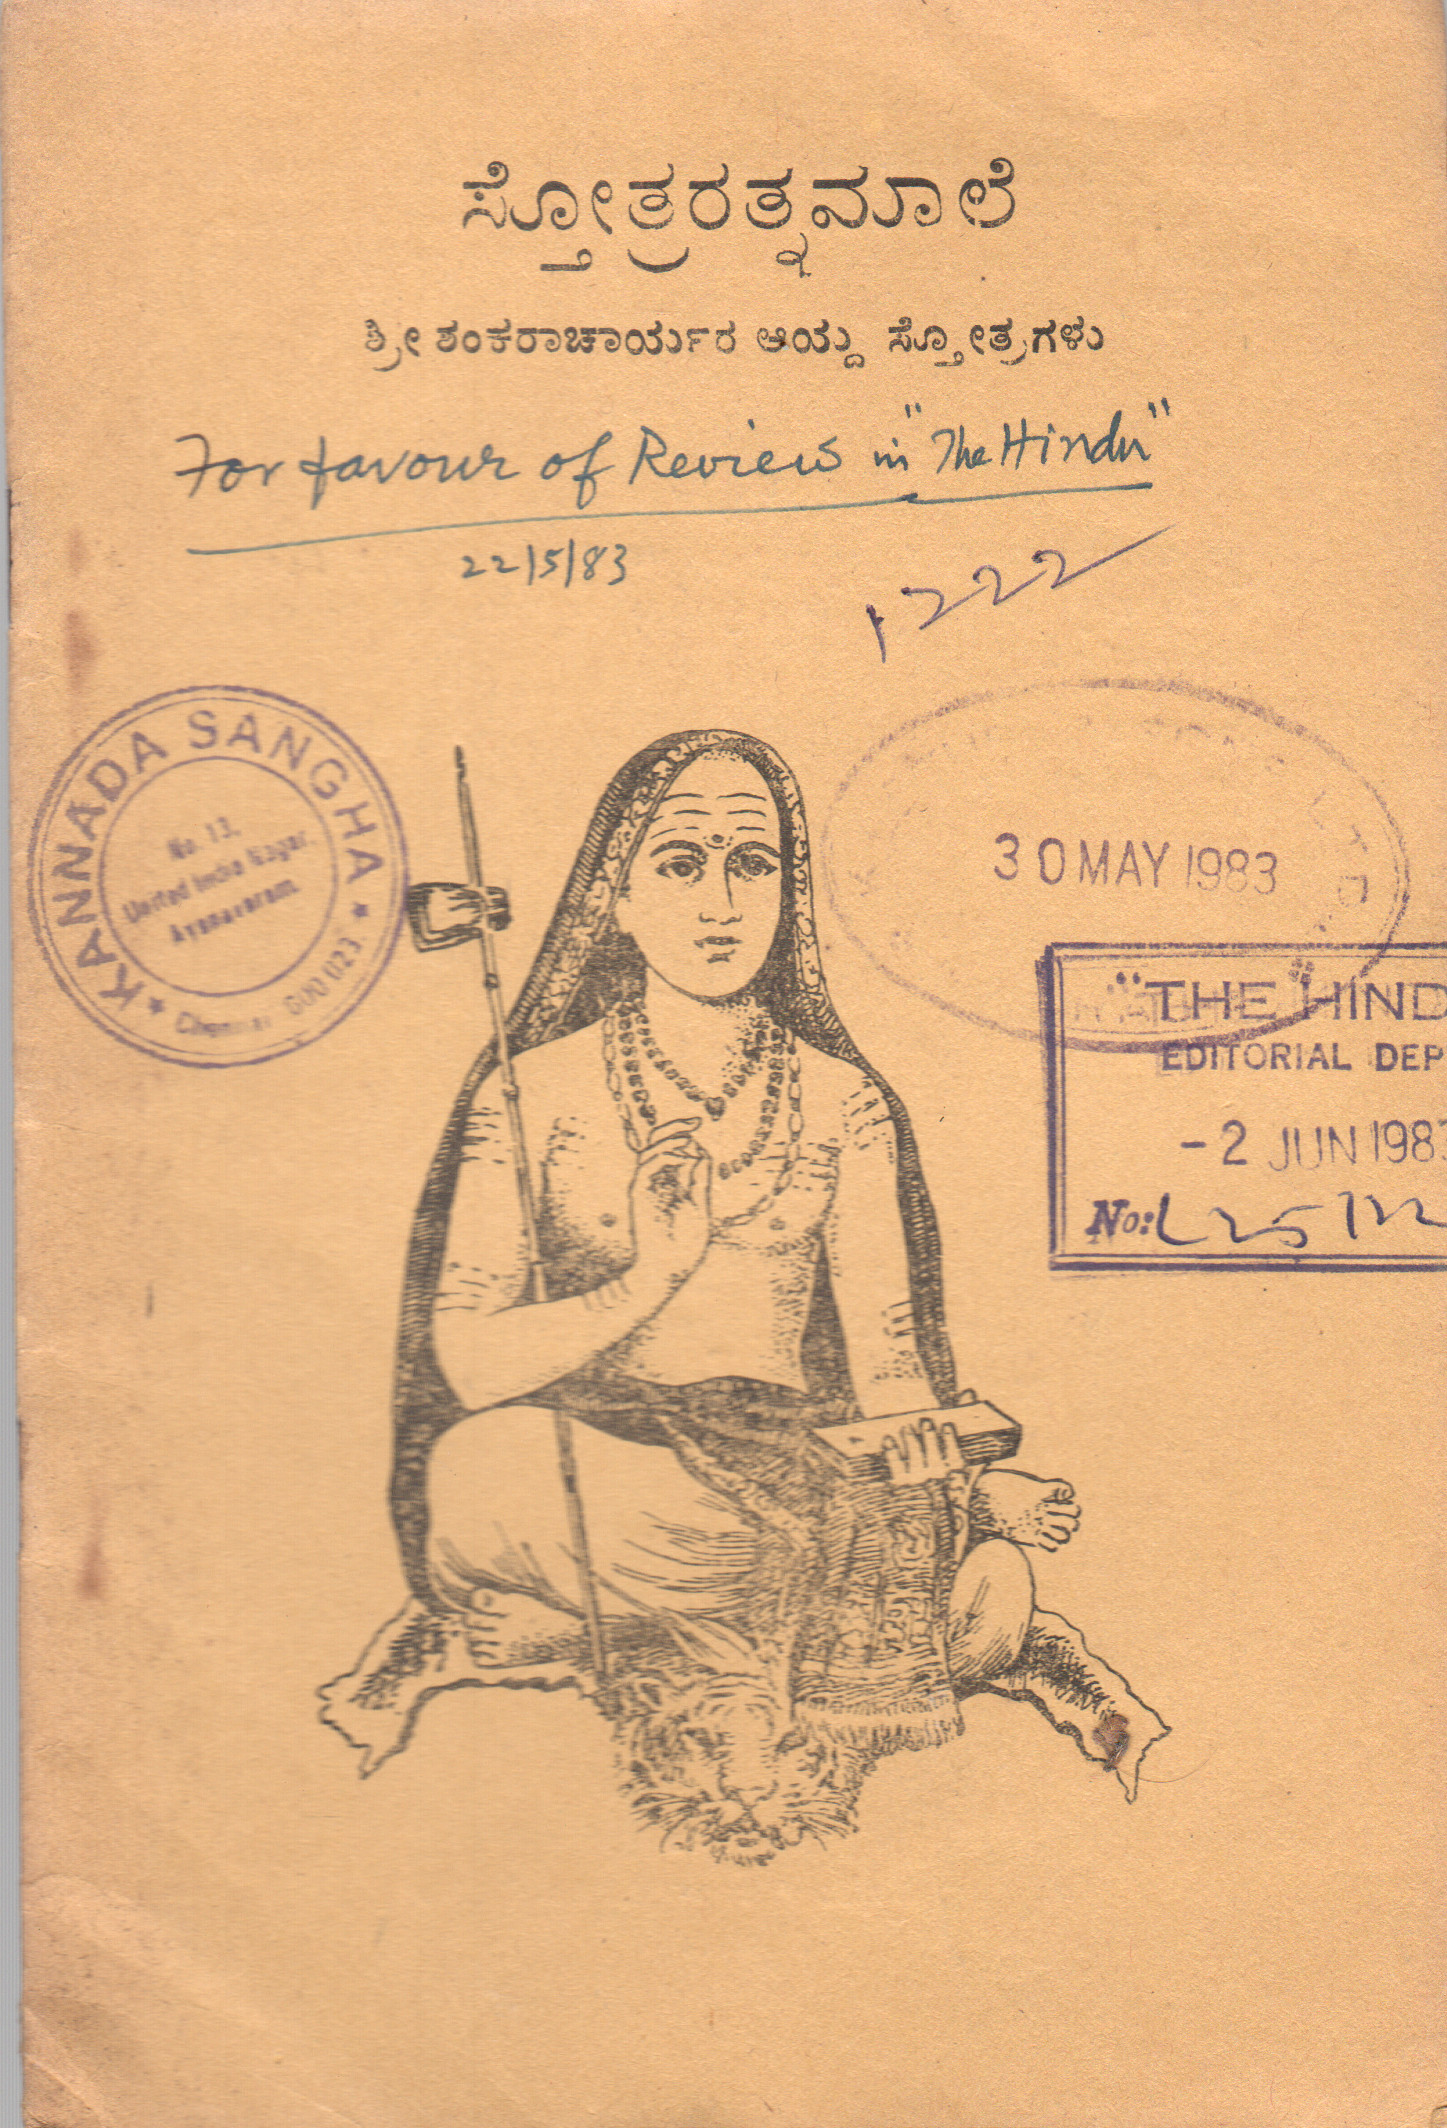 ಸ್ತೋತ್ರರತ್ನಮಾಲೆ
ಶ್ರೀ ಶಂಕರಾಚಾರ್ಯರ ಆಯ್ದ ಸ್ತೋತ್ರಗಳು
For favour of Review in "The Hindu"
22/5/83
KANNADA SANGHA
No. 13,
United India Nagar,
Ayanavaram
600 023
30 MAY 1983
"THE HIND
EDITORIAL DEP
-2 JUN 198
No: